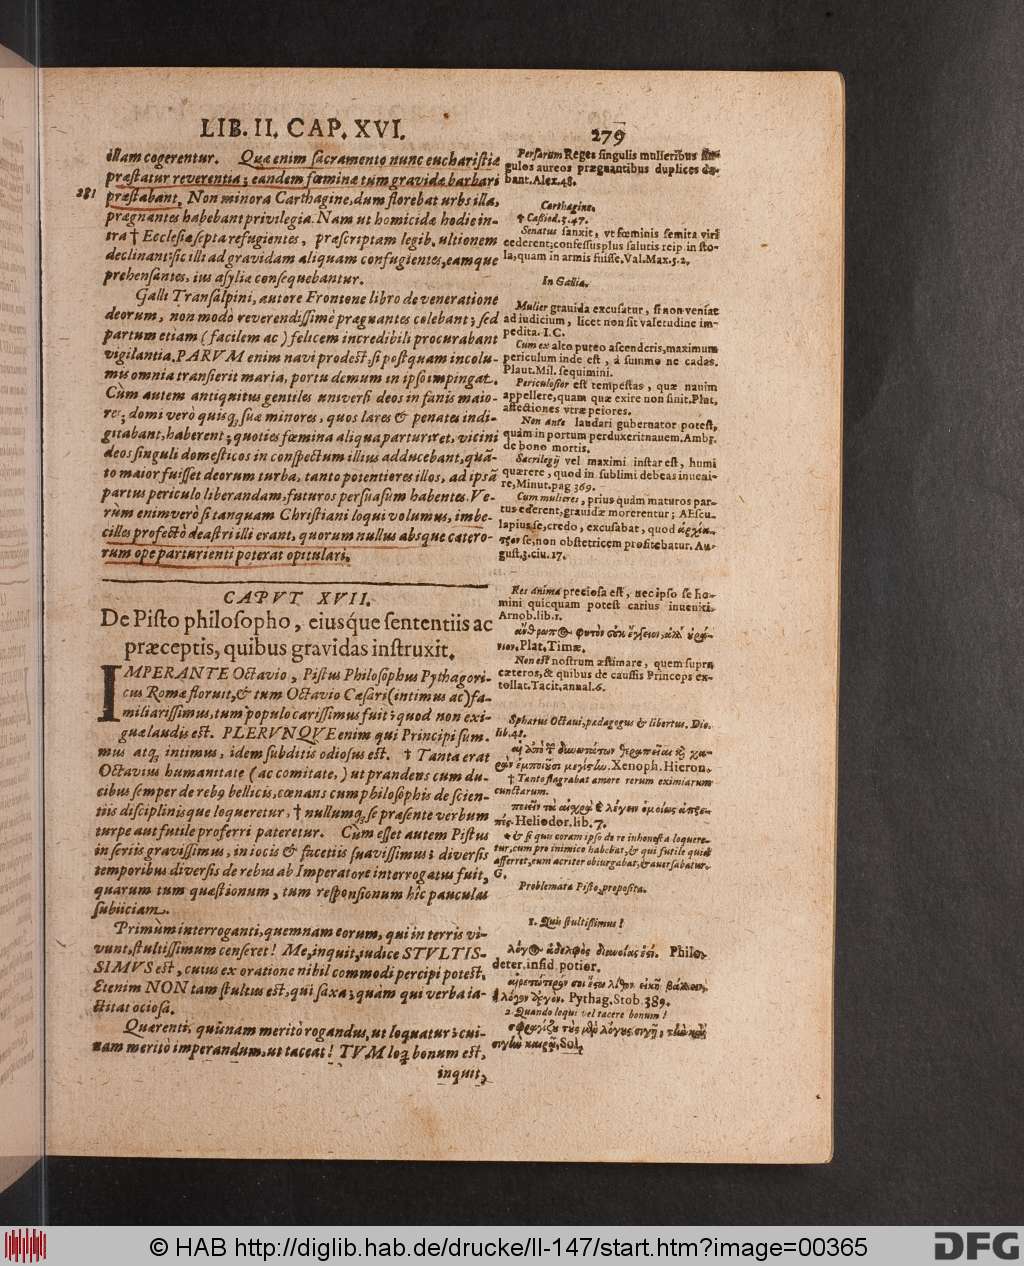 LIB. II. CAP. XVI.
279
illam cogerentur. Quæ enim sacramento nunc eucharistiæ
præstatur reverentia; eandem fœminæ tùm gravidæ barbari
281
præstabant. Non minora Carthagine, dum florebat urbs illa,
prægnantes habebant privilegia. Nam ut homicidæ hodie in-
tra † Ecclesiæ septa refugientes, præscriptam legib. ultionem
declinant: sic illi ad gravidam aliquam confugientes, eamque
prehensantes, ius asylia consequebantur.
Galli Transalpini, autore Frontone libro de veneratione
deorum, non modò reverendissimè prægnantes colebant; sed
partum etiam (facilem ac) felicem incredibili procurabant
vigilantia. PARVM enim navi prodest, si postquam incolu-
mis omnia transierit maria, portu demum in ipso impingat.
Cùm autem antiquitus gentiles universi deos in fanis maio-
res; domi verò quisq; suæ minores, quos lares & penates indi-
gitabant, haberent; quoties fœmina aliqua parturiret, vicini
deos singuli domesticos in conspectum illius adducebant, quã-
to maior fuisset deorum turba, tanto potentiores illos, ad ipsã
partus periculo liberandam, futuros persuasùm habentes. Ve-
rùm enimverò si tanquam Christiani loqui volumus, imbe-
cilles profectò deastri illi erant, quorum nullus absque cætero-
rum ope parturienti poterat opitulari.
CAPVT XVII.
De Pisto philosopho, eiusq́ue sententiis ac
præceptis, quibus gravidas instruxit.
IMPERANTE Octavio, Pistus Philosophus Pythagori-
cus Romæ floruit, & tum Octavio Cæsari (intimus ac) fa-
miliarissimus, tum populo carissimus fuit; quod non exi-
guæ laudis est. PLERVNQVE enim qui Principi sum-
mus atq; intimus, idem subditis odiosus est. † Tanta erat
Octavius humanitate (ac comitate,) ut prandens cum du-
cibus semper de reb9 bellicis, cœnans cum philosophis de scien-
tiis disciplinisque loqueretur, † nullumq; se præsente verbum
turpe aut futile proferri pateretur. Cùm esset autem Pistus
in seriis gravissimus, in iocis & facetiis suavissimus; diversis
temporibus diversis de rebus ab Imperatore interrogatus fuit,
quarum tum quæstionum, tum responsionum hîc paucula
subiiciam.
Primùm interroganti, quemnam eorum, qui in terris vi-
vunt, stultissimum censeret! Me, inquit, iudice STVLTIS-
SIMVS est, cuius ex oratione nihil commodi percipi potest.
Etenim NON tam stultus est, qui saxa; quàm qui verba ia-
ctitat ociosa.
Quærenti, quisnam meritò rogandus, ut loquatur; cui-
nam meritò imperandum, ut taceat! TVM loq; bonum est,
inquit,
Persarum Reges singulis mulieribus sin-
gulos aureos prægnantibus duplices da-
bant. Alex. 48.
Carthagine.
† Cassiod. 3.47.
Senatus sanxit, vt fœminis semita viri
cederent; confessus plus salutis reip. in sto-
la, quam in armis fuisse. Val. Max. 5.2.
In Gallia.
Mulier gravida excusatur, si non veniat
ad iudicium, licet non sit valetudine im-
pedita. I.C.
Cum ex alto puteo ascenderis, maximum
periculum inde est, à summo ne cadas.
Plaut. Mil. sequimini.
Periculosior est tempestas, quæ navim
appellere, quam quæ exire non sinit. Plut.
affectiones vtræ peiores.
Non ante laudari gubernator potest,
quàm in portum perduxerit navem. Ambr.
de bono mortis.
Sacrilegij vel maximi instar est, humi
quærere, quod in sublimi debeas inveni-
re, Minut. pag 369.
Cum mulieres, prius quàm maturos par-
tus ederent, gravidæ morerentur; Æscu-
lapius se, credo, excusabat, quod
se, non obstetricem profitebatur. Au-
gust. 3. ciu. 17.
Res anima preciosa est, nec ipso se ho-
mini quicquam potest carius inveniri.
Arnob. lib. 1.
Plat. Timæ.
Non est nostrum æstimare, quem supra
cæteros, & quibus de caussis Princeps ex-
tollat. Tacit. annal. 6.
Sphærus Octavi, pædagogus & libertus. Dio.
lib. 48.
Xenoph. Hieron.
† Tanto flagrabat amore rerum eximiarum
cunctarum.
Heliodor. lib. 7.
† & si quis coram ipso de re inhonesta loquere-
tur, cum pro inimico habebat, & qui futile quid
afferret, eum acriter obiurgabat, & aversabatur.
G.
Problemata Pisto proposita.
1. Quis stultissimus?
λόγος Philo.
deter. insid. potior.
Pythag. Stob. 389.
2. Quando loqui vel tacere bonum?
Sol.
© HAB http://diglib.hab.de/drucke/ll-147/start.htm?image=00365
DFG